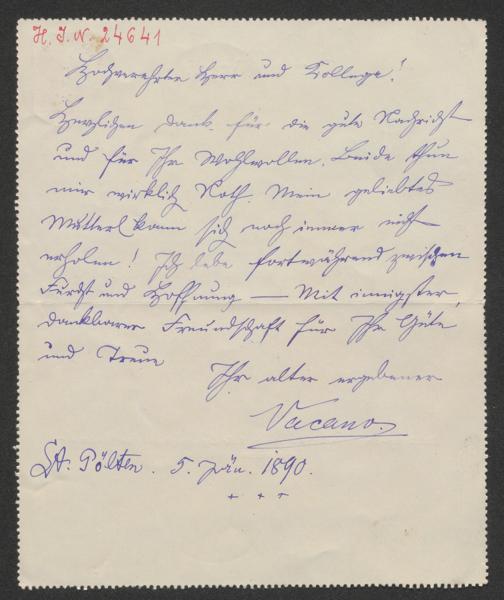 H. I. N. 24641
Hochverehrter Herr und College!
Herzlichen Dank für die gute Nachricht
und für Ihr Wohlwollen. Beide thun
mir wirklich Noth. Mein geliebtes
Mutterl kann sich noch immer nicht
erholen! Ich lebe fortwährend zwischen
Furcht und Hoffnung — Mit innigster,
dankbarer Freundschaft für Ihre Güte
und Treue
Ihr alter ergebener
Vacano.
St. Pölten. 5. Jän. 1890.
+ + +